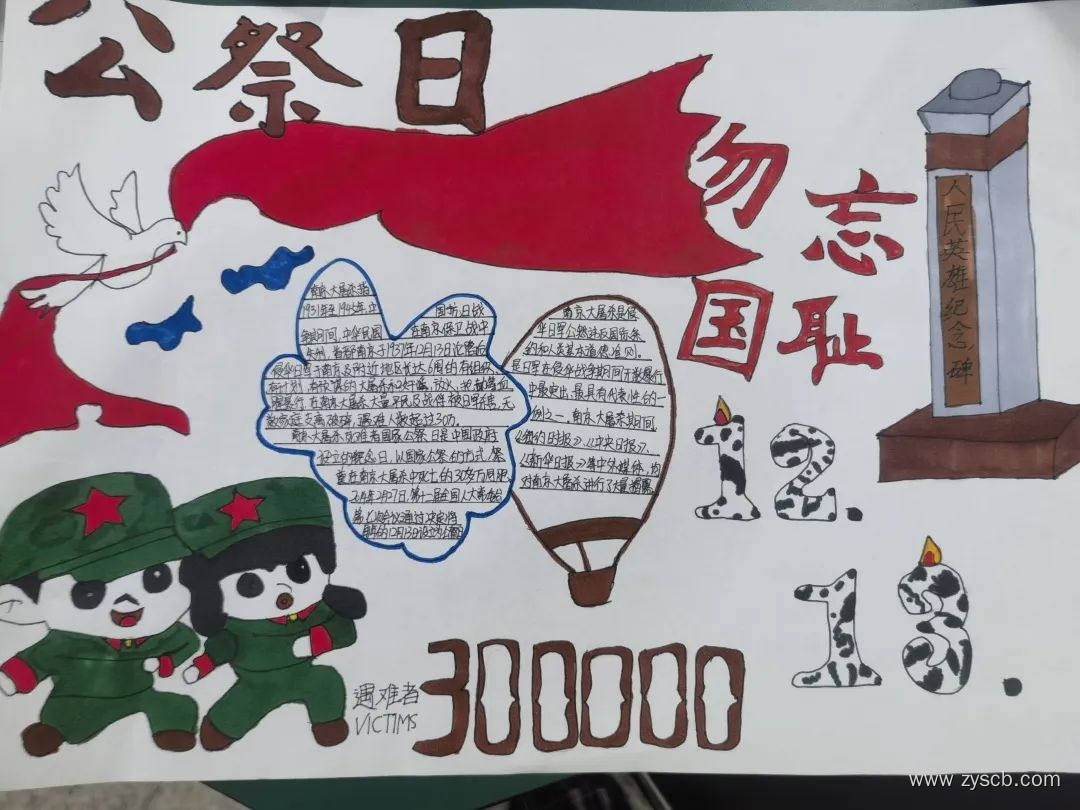 公祭日
勿忘
国耻
人民英雄纪念碑
南京大屠杀指
1931年至1945年中
国抗日战
争期间,中华民国
在南京保卫战中
失利、首都南京于1937年12月13日沦陷后
侵华日军于南京及附近地区长达6周的有组织
有计划、有预谋的大屠杀和奸淫、放火、抢劫等血
腥暴行,在南京大屠杀
大量平民及战俘被日军杀害,无
数家庭支离破碎,遇难人数超过30万。
南京大屠杀死难者国家公祭日是中国政府
设立的纪念日,以国家公祭的方式,祭
奠在南京大屠杀中死亡的30多万同胞
2014年2月27日,第十二届全国人大常委会
第七次会议通过决定将
每年的12月13日设立为公祭日
南京大屠杀是侵
华日军公然违反国际条
约和人类基本道德准则。
是日军在侵华战争期间无数暴行
中最突出、最具有代表性的一
例之一。南京大屠杀期间,
《纽约日报》、《中央日报》、
《新华日报》等中外媒体,均
对南京大屠杀进行了大量揭露
12.
13.
遇难者
VICTIMS
300000
www.zyscb.com